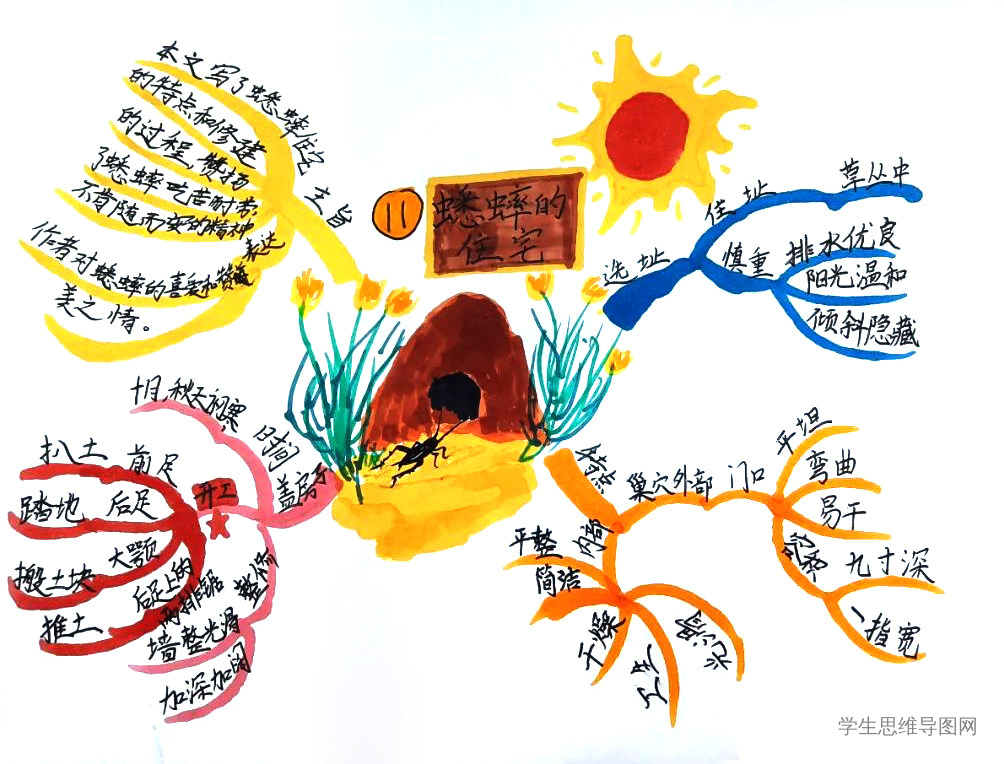 11
蟋蟀的
住宅
本文写了蟋蟀住宅
的特点和修建
的过程,赞扬
了蟋蟀吃苦耐劳,
不肯随遇而安的精神
主旨
表达
作者对蟋蟀的喜爱和赞
美之情。
选址
住址
草丛中
慎重
排水优良
阳光温和
倾斜隐藏
特点
巢穴外部
门口
平坦
弯曲
易干
九寸深
一指宽
内部
平整
简洁
干燥
卫生
光滑
盖房子
时间
十月,秋天初寒
开工
前足
扒土
后足
踏地
大颚
搬土块
后足上的
两排锯
推土
整修
墙整光滑
加深加阔
学生思维导图网